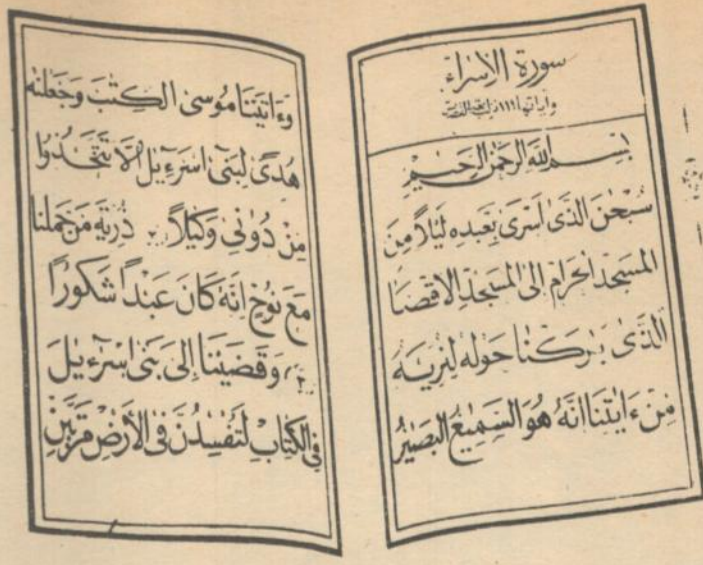 سورة الإسراء
وآياتها ١١١
بسم الله الرحمن الرحيم
سُبْحٰنَ الَّذِى أَسْرَى بِعَبْدِهِ لَيْلًا مِنَ
المَسْجِدِ الحَرَامِ إِلَى المَسْجِدِ الأَقْصَا
الَّذِى بٰرَكْنَا حَوْلَهُ لِنُرِيَهُ
مِنْ ءَايٰتِنَا إِنَّهُ هُوَ السَّمِيعُ البَصِيرُ
وَءَاتَيْنَا مُوسَى الكِتٰبَ وَجَعَلْنٰهُ
هُدًى لِبَنِى إِسْرَءِيلَ أَلَّا تَتَّخِذُوا
مِنْ دُونِى وَكِيلًا ذُرِّيَّةَ مَنْ حَمَلْنَا
مَعَ نُوحٍ إِنَّهُ كَانَ عَبْدًا شَكُورًا
وَقَضَيْنَا إِلَى بَنِى إِسْرَءِيلَ
فِى الكِتَابِ لَتُفْسِدُنَّ فِى الأَرْضِ مَرَّتَيْنِ